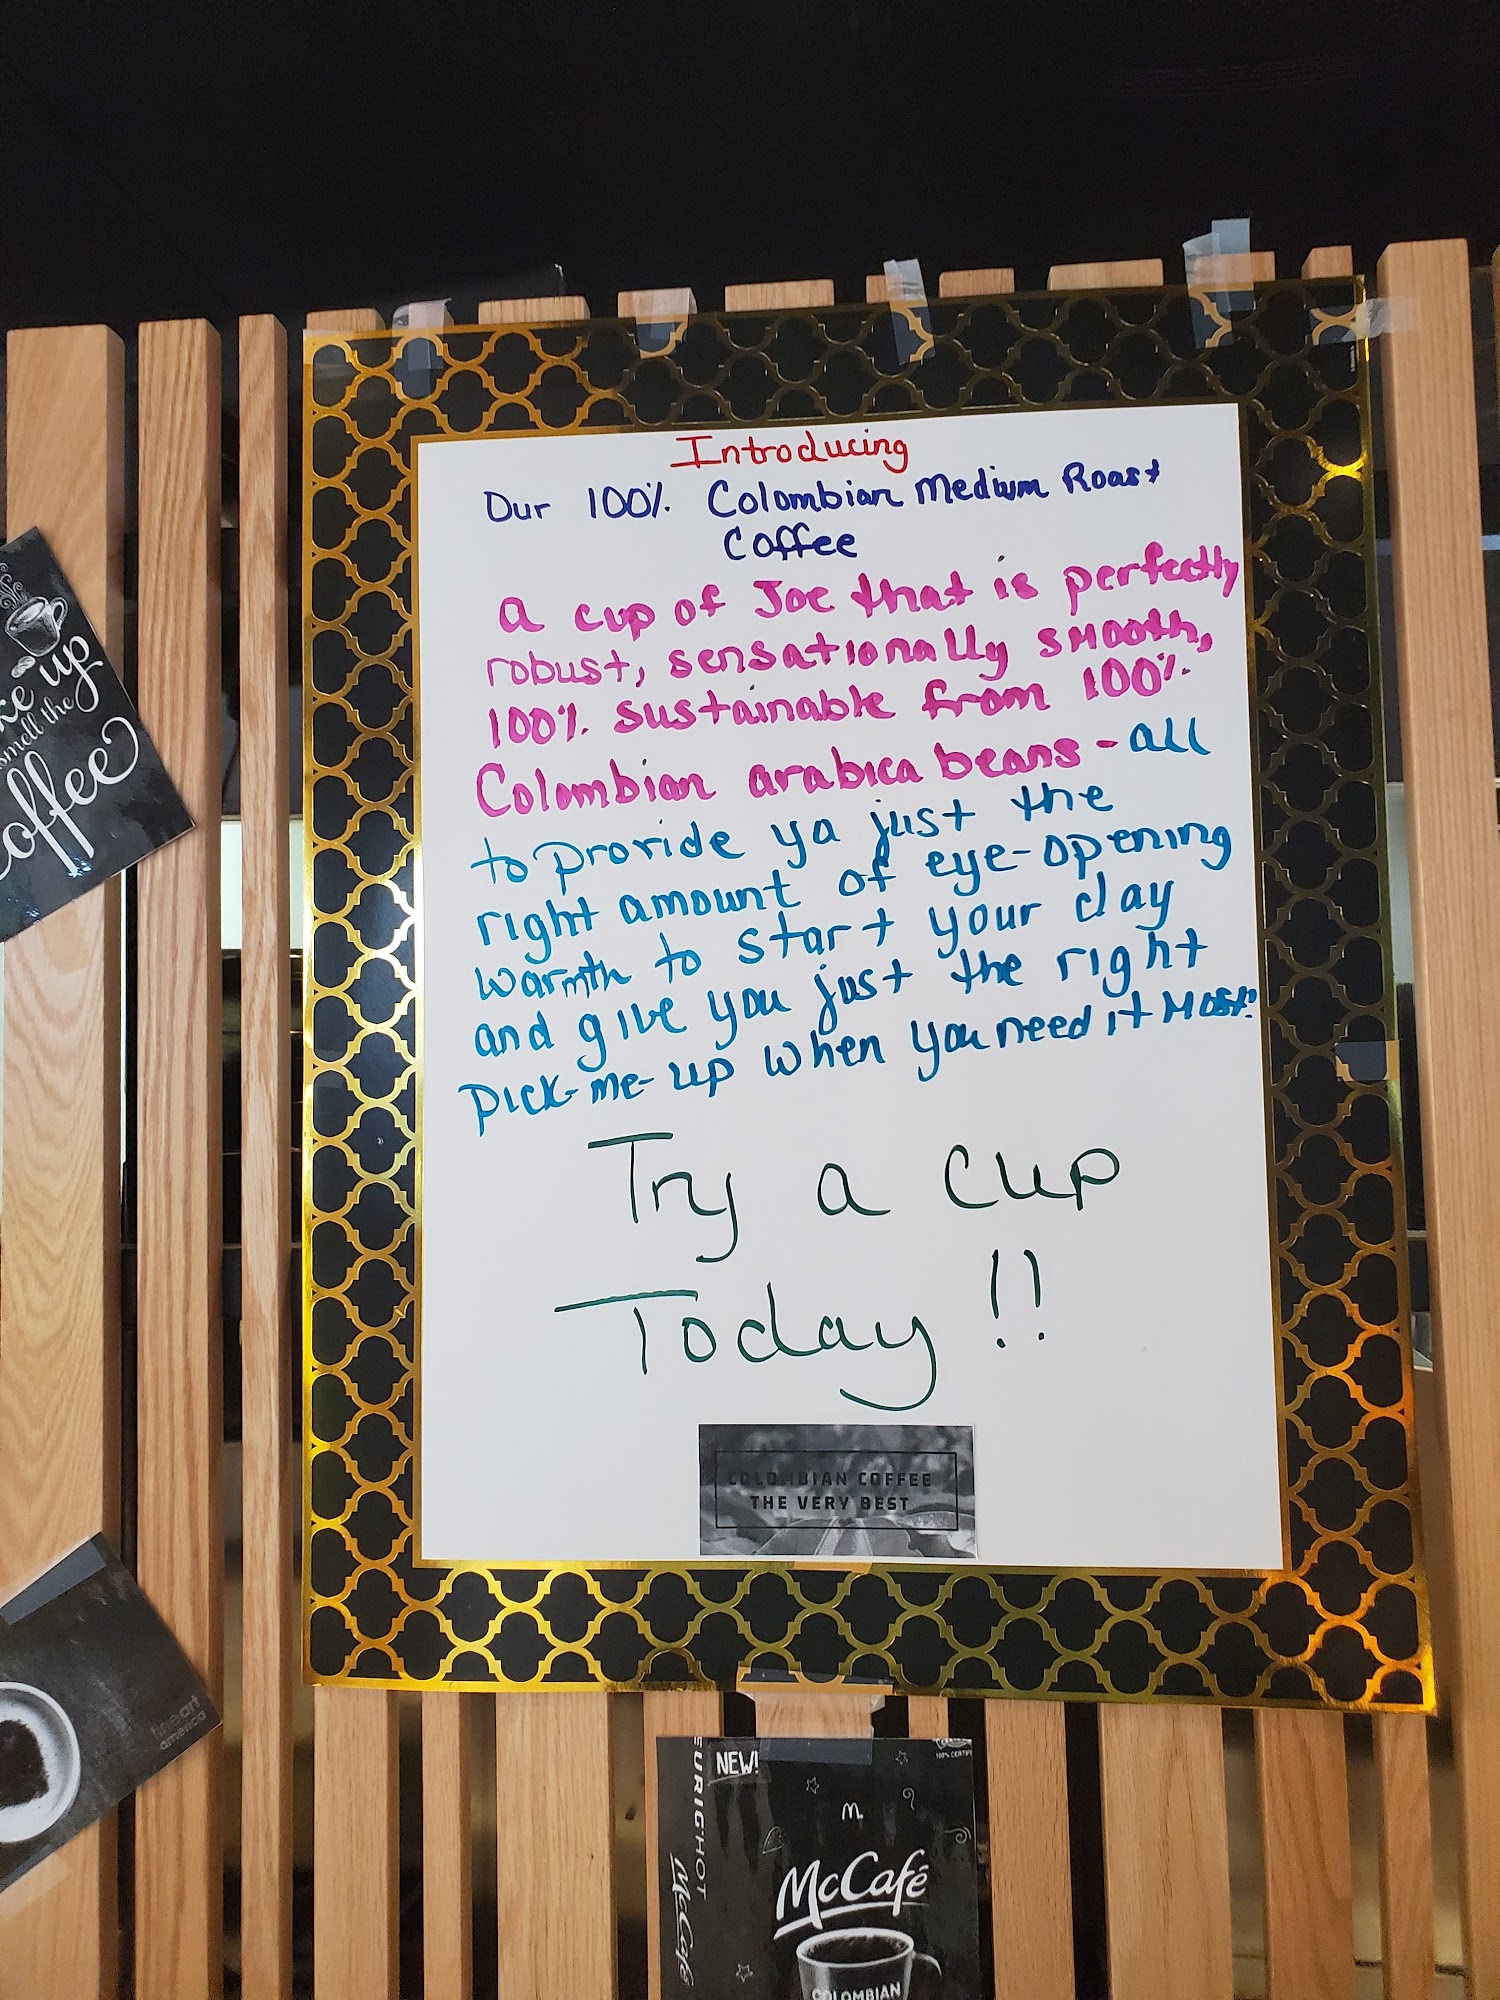 Introducing
Our 100% Colombian Medium Roast
Coffee
a cup of Joe that is perfectly
robust, sensationally smooth,
100% sustainable from 100%
Colombian arabica beans - all
to provide ya just the
right amount of eye-opening
warmth to start your day
and give you just the right
pick-me-up when you need it most!
Try a cup
Today !!
COLOMBIAN COFFEE
THE VERY BEST
ke up
smell the
coffee
fineart
america
NEW!
HOT
McCafé
100% CERTIF
m
McCafé
COLOMBIAN